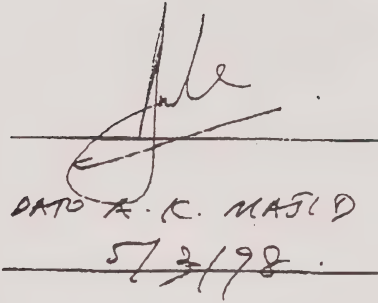 DATO A. K. MAJID
5/3/98.